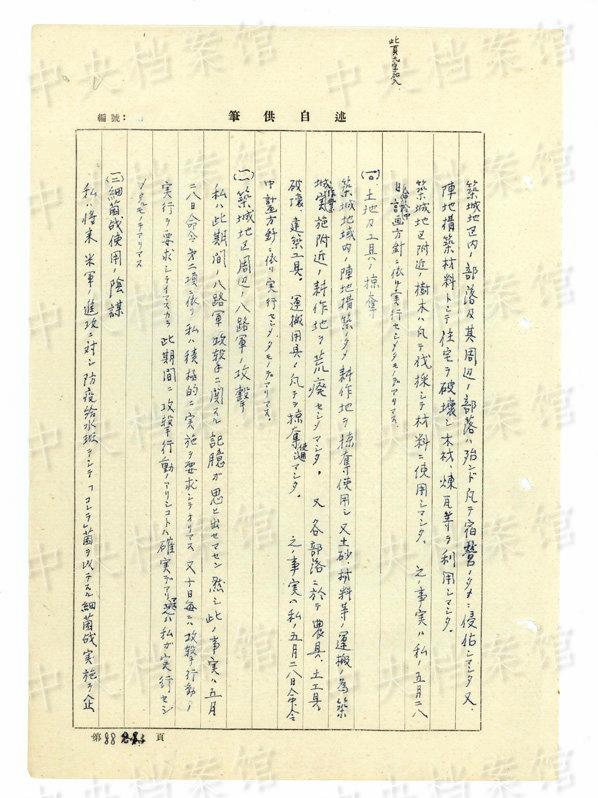 中央档案馆
此頁九字記入
筆供自述
編號:
築城地区内ノ部落及其周辺ノ部落ハ殆ンド凡テ宿営ノタメニ侵佔シマシタ又
陣地構築材料トシテ住宅ヲ破壊シ木材、煉瓦等ヲ利用シマシタ。
築城地区附近ノ樹木ハ凡テ伐採シテ材料ニ使用シマシタ。之ノ事実ハ私ノ五月二八
日計画方針ニ依リ実行セシメタモノデアリマス。
土地及工具ノ掠奪
築城地域内ノ陣地構築ノタメ耕作地ヲ掠奪使用シ又土砂、材料等ノ運搬ノ為築
城実施附近ノ耕作地ヲ荒廃セシメマシタ。又各部落ニ於テ農具、土工具
破壊、建築工具、運搬用具ノ凡テヲ掠奪使用シマシタ。之ノ事実ハ私ノ五月二八日命令
中計画方針ニ依リ実行セシメタモノデアリマス。
築城地区周辺ノ八路軍ノ攻撃
私ハ此期間ノ八路軍攻撃ニ関スル記臆ガ思ヒ出セマセン然シ此ノ事実ハ五月
二八日命令第二項ニ依リ私ハ積極的ニ実施ヲ要求シテオリマス又十日毎ニ攻撃行動ノ
実行ヲ要求シテイマスカラ此期間ニ攻撃行動ノアリシコトハ確実デアリ之ハ私ガ実行セシ
メタモノデアリマス
(三)細菌戦使用ノ陰謀
私ハ将来米軍ノ進攻ニ対シ防疫給水班ヲシテ「コレラ」菌ヲ以テスル細菌戦実施ヲ企
第88頁